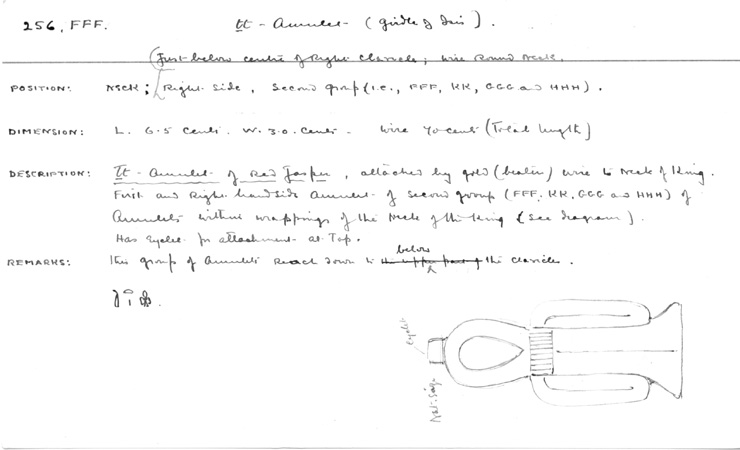 256, FFF.
tt - Amulet - (girdle of Isis).
(Just below centre of Right Clavicle; wire round neck.
POSITION: Neck; Right side, Second group (i.e., FFF, KK, GGG and HHH).
DIMENSION: L. 6.5 cents. W. 3.0. cents. Wire 40 cents (Total length)
DESCRIPTION: Tt - Amulet of Red Jasper, attached by gold (beaten) wire to Neck of King.
First and Right hand side Amulet of Second group (FFF, KK, GGG and HHH) of
Amulets within wrappings of the Neck of the King (see diagram).
Has eyelet for attachment at Top.
REMARKS: This group of Amulets reach down to the upper part of below the clavicles.
eyelet
Nat: Size